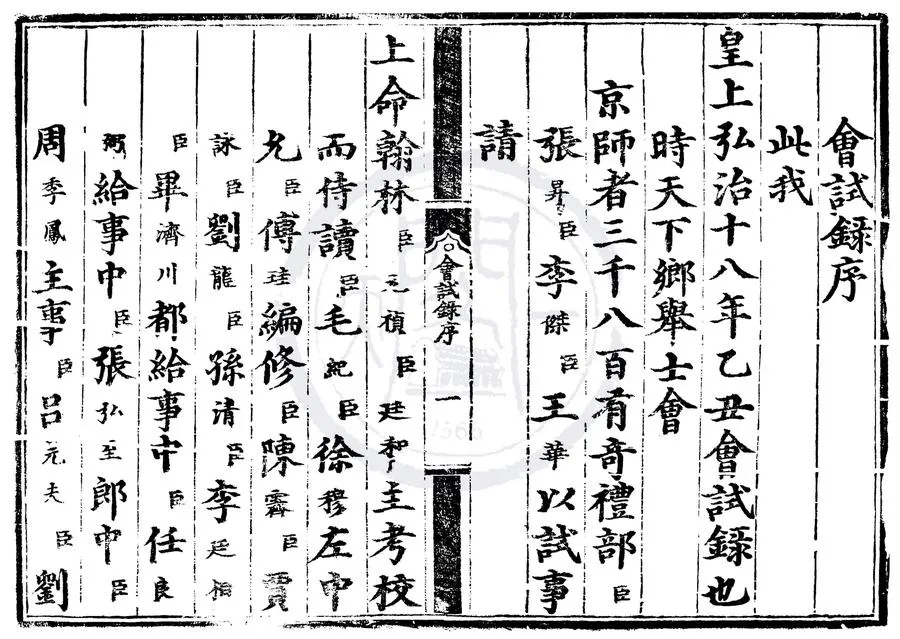 會試錄序
此我
皇上弘治十八年乙丑會試錄也
時天下鄉舉士會
京師者三千八百有奇禮部臣
張昇臣李傑臣王華以試事
請
會試錄序 一
上命翰林臣元禎臣廷和主考校
而侍讀臣毛紀臣徐穆左中
允臣傅珪編修臣陳霽臣賈
詠臣劉龍臣孫清臣李廷相
臣畢濟川都給事中臣任良
弼給事中臣張弘至郎中臣
周季鳳主事臣呂元夫臣劉
1566